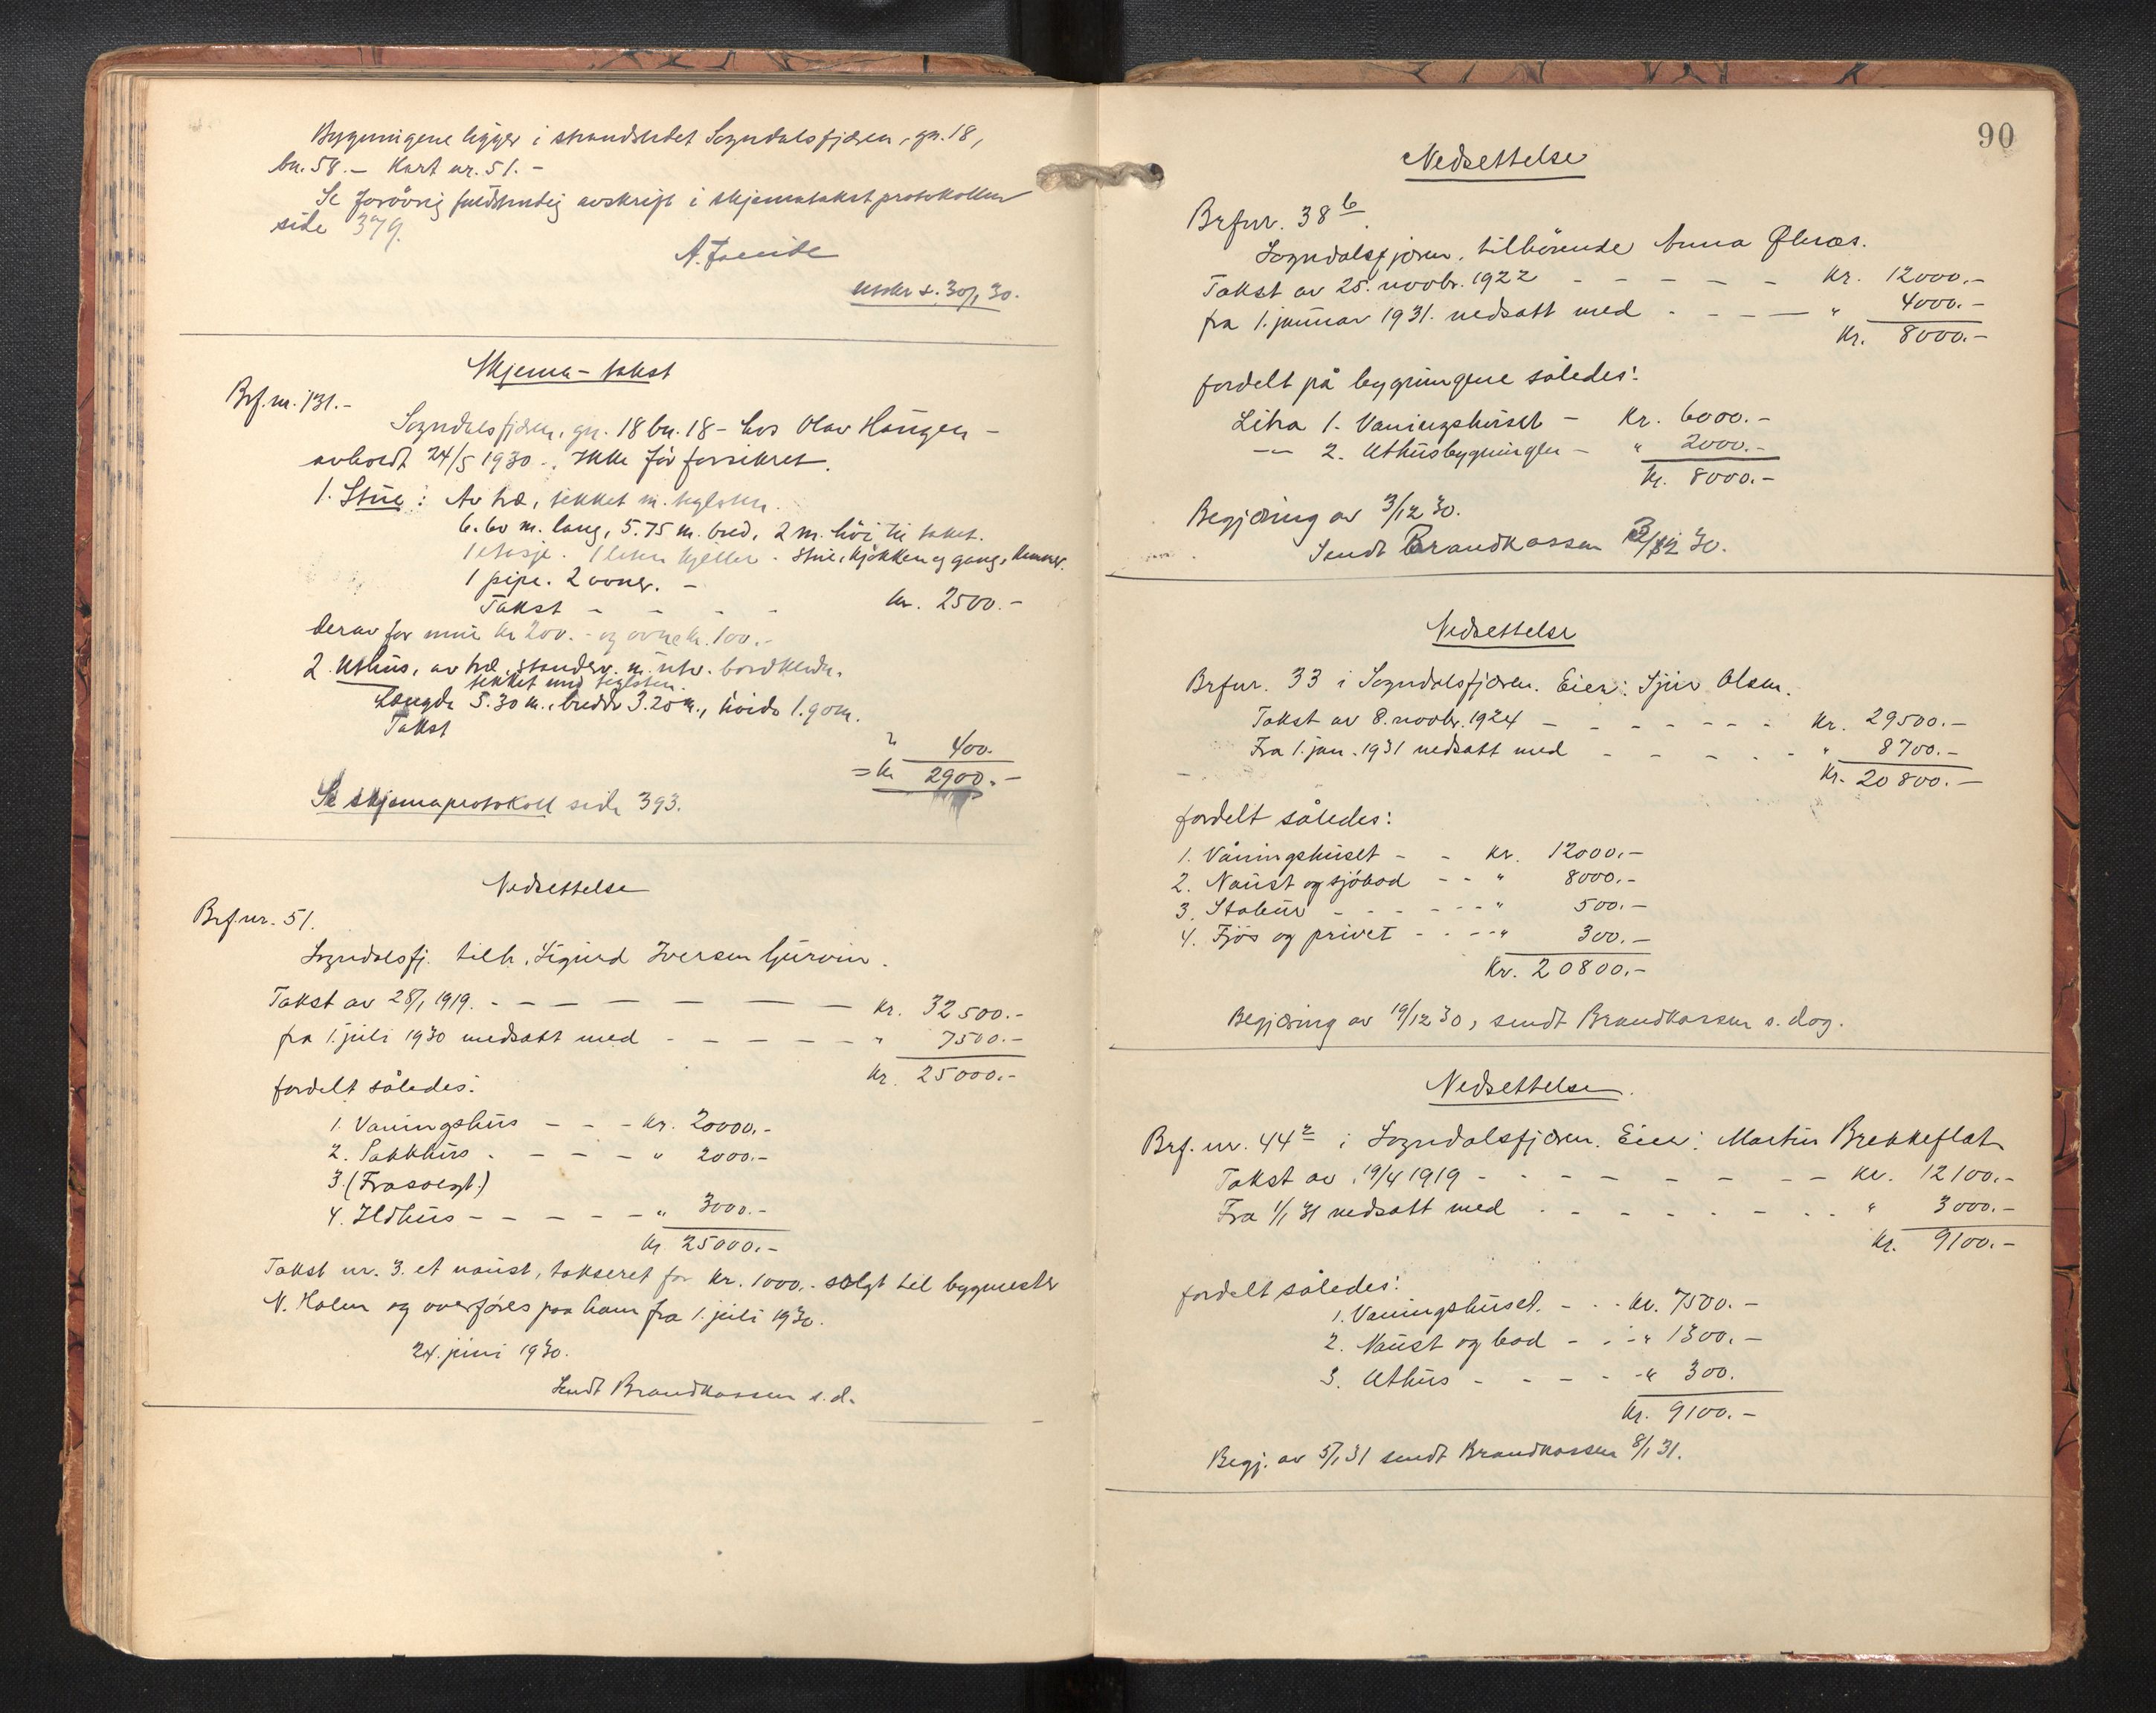 Bygningene ligger i strandstedet Sogndalsfjæren, gn. 18,
bn. 58. - Kart nr. 51. -
Se forøvrig fuldstendig avskrift i skjematakstprotokollen
side 379.
Utskr s. 30/1 30.
Skjema-takst
Brf. nr. 131. -
Sogndalsfjæren, gn. 18 bn. 18 - hos Olav Haugen -
avholdt 24/5 1930 -. Ikke før forsikret.
1. Stue: Av træ, tekket m. teglsten.
6.60 m. lang, 5.75 m. bred, 2 m. høi til taket.
1 etasje. 1 liten kjeller. Stue, kjøkken og gang, kammer.
1 pipe. 2 ovner. -
Takst - - - - kr. 2500.-
derav for mur kr 200.- og ovne kr. 100.-
2. Uthus, av træ, stenderv. m. utv. bordklædn.
tekket med teglsten.
Længde 5.30 m., bredde 3.20 m., høide 1.90 m.
Takst " 400.
= kr 2900.-
Se skjemaprotokoll side 393.
Nedsettelse
Brf.nr. 51.
Sogndalsfj. tilh. Sigurd Iversen Gurvin.
Takst av 28/1 1919. - - - - - - - kr. 32500.-
fra 1. juli 1930 nedsatt med - - - - - " 7500.-
kr. 25000.-
fordelt således:
1. Vaningshus - - - kr. 20000.-
2. Pakkhus - - - - " 2000.-
3. (Frasolgt.)
4. Ildhus - - - - - " 3000.-
kr. 25000.-
Takst nr. 3. et naust, takseret for kr. 1000.- solgt til bygmester
N. Holen og overføres paa ham fra 1. juli 1930.
24. juni 1930.
Sendt Brandkassen s.d.
90
Nedsettelse
Brfnr. 38 b.
Sogndalsfjæren, tilhørende Anna Øknæs.
Takst av 25. novbr. 1922 - - - - - kr. 12000.-
fra 1. januar 1931. nedsatt med - - - - " 4000.-
kr. 8000.-
fordelt på bygningene således:
Litra 1. Vaningshuset - kr. 6000.-
-"- 2. Uthusbygningen - " 2000.-
kr. 8000.-
Begjæring av 3/12 30.
Sendt Brandkassen 3/12 30.
Nedsettelse
Brfnr. 33 i Sogndalsfjæren. Eier: Sjur Olsen.
Takst av 8. novbr. 1924 - - - - - - - kr. 29500.-
Fra 1. jan. 1931 nedsatt med - - - - - " 8700.-
kr. 20800.-
fordelt således:
1. Våningshuset - - kr. 12000.-
2. Naust og sjøbod - - " 8000.-
3. Stabur - - - - - - " 500.-
4. Fjøs og privet - - - - " 300.-
kr. 20800.-
Begjæring av 19/12 30, sendt Brandkassen s. dag.
Nedsettelse.
Brf. nr. 44 2 i Sogndalsfjæren. Eier: Martin Brekkeflat
Takst av 19/4 1919 - - - - - - - - kr. 12100.-
Fra 1/1 31 nedsatt med - - - - - - - - " 3000.-
kr. 9100.-
fordelt således:
1. Vaningshuset. - - - kr. 7500.-
2. Naust og bod - - - " 1300.-
3. Uthus - - - - - " 300.
kr. 9100.-
Begj. av 5/1 31 sendt Brandkassen 8/1 31.